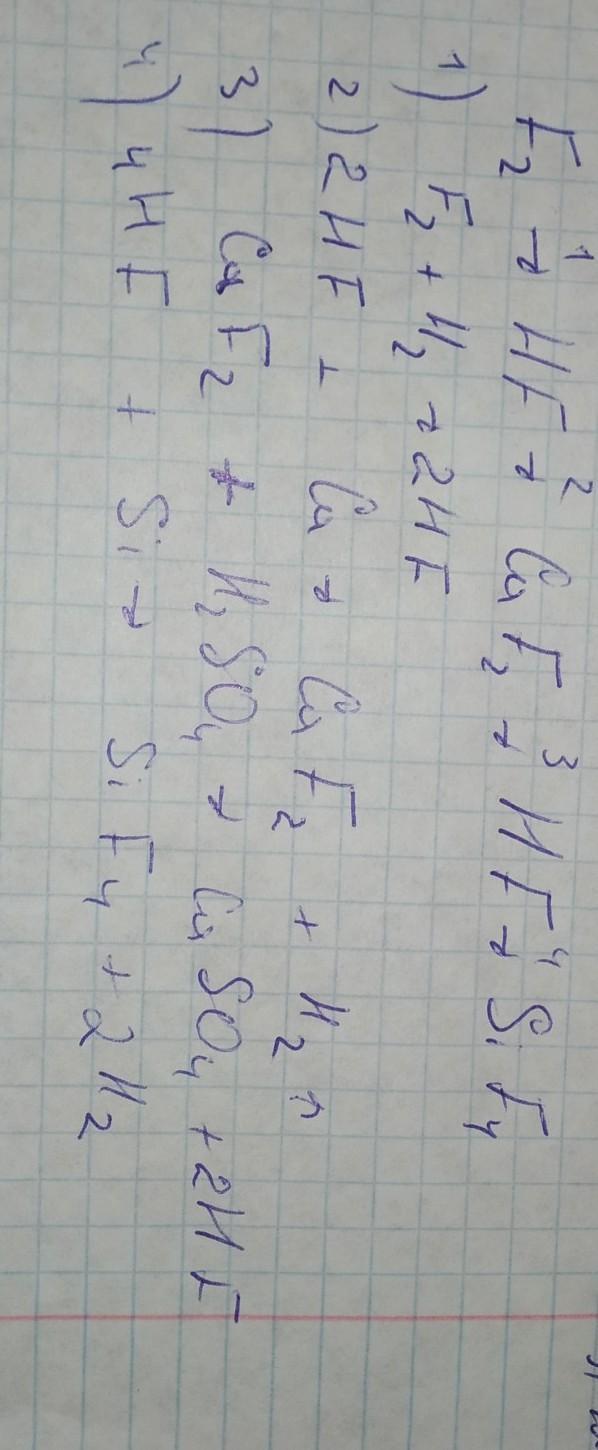 F₂ →¹ HF →² CaF₂ →³ HF →⁴ SiF₄
1) F₂ + H₂ → 2HF
2) 2HF + Ca → CaF₂ + H₂ ↑
3) CaF₂ + H₂SO₄ → CaSO₄ + 2HF
4) 4HF + Si → SiF₄ + 2H₂